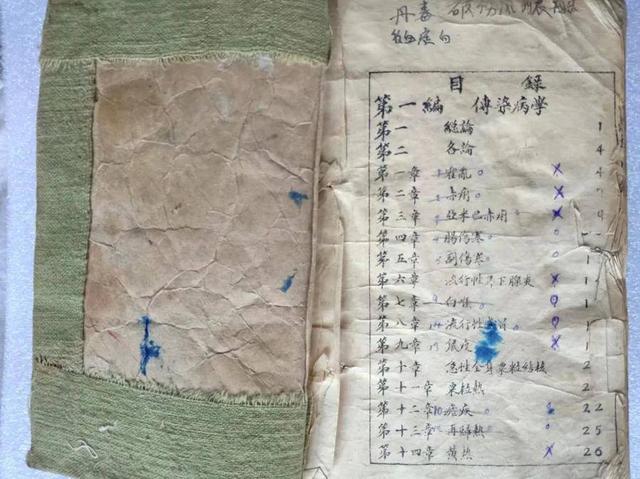 丹毒 破伤风
目 錄
第一編 傳染病学
第一 総論 1
第二 各論 4
第一章 霍乱 4
第二章 赤痢
第三章 亚米巴赤痢
第四章 腸伤寒
第五章 副伤寒 1
第六章 流行性耳下腺炎 1
第七章 白喉 1
第八章 流行性感冒 1
第九章 鼠疫 1
第十章 急性全身粟粒结核 2
第十一章 粟粒熱 2
第十二章 瘧疾 22
第十三章 再歸熱 25
第十四章 黄热 26